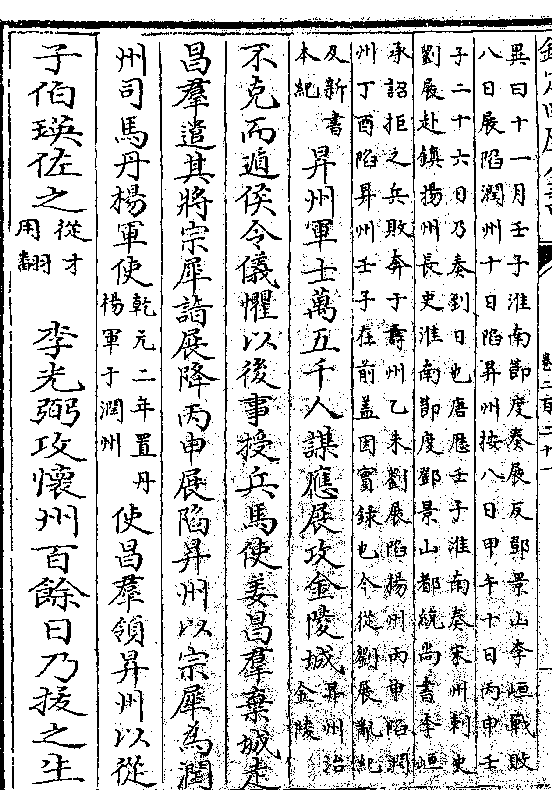 異曰十一月壬子淮南節度奏展反鄭景山李峘戰敗
八日展陷潤州十日陷昇州按八日甲午十日丙申壬
子二十六日乃奏到日也唐歷壬子淮南奏宋州刺史
劉展赴鎮揚州長史淮南節度鄧景山都統尚書李峘
承詔拒之兵敗奔于壽州乙未劉展陷揚州丙申陷潤
州丁酉陷昇州壬子在前蓋因實錄也今從劉展亂紀
及新書
本紀
昇州軍士萬五千人謀應展攻金陵城
昇州治
金陵
不克而遁侯令儀懼以後事授兵馬使姜昌羣棄城走
昌羣遣其將宗犀詣展降丙申展陷昇州以宗犀為潤
州司馬丹楊軍使
乾元二年置丹
楊軍于潤州
使昌羣領昇州以從
子伯瑛佐之
從才
用翻
李光弼攻懷州百餘日乃拔之生